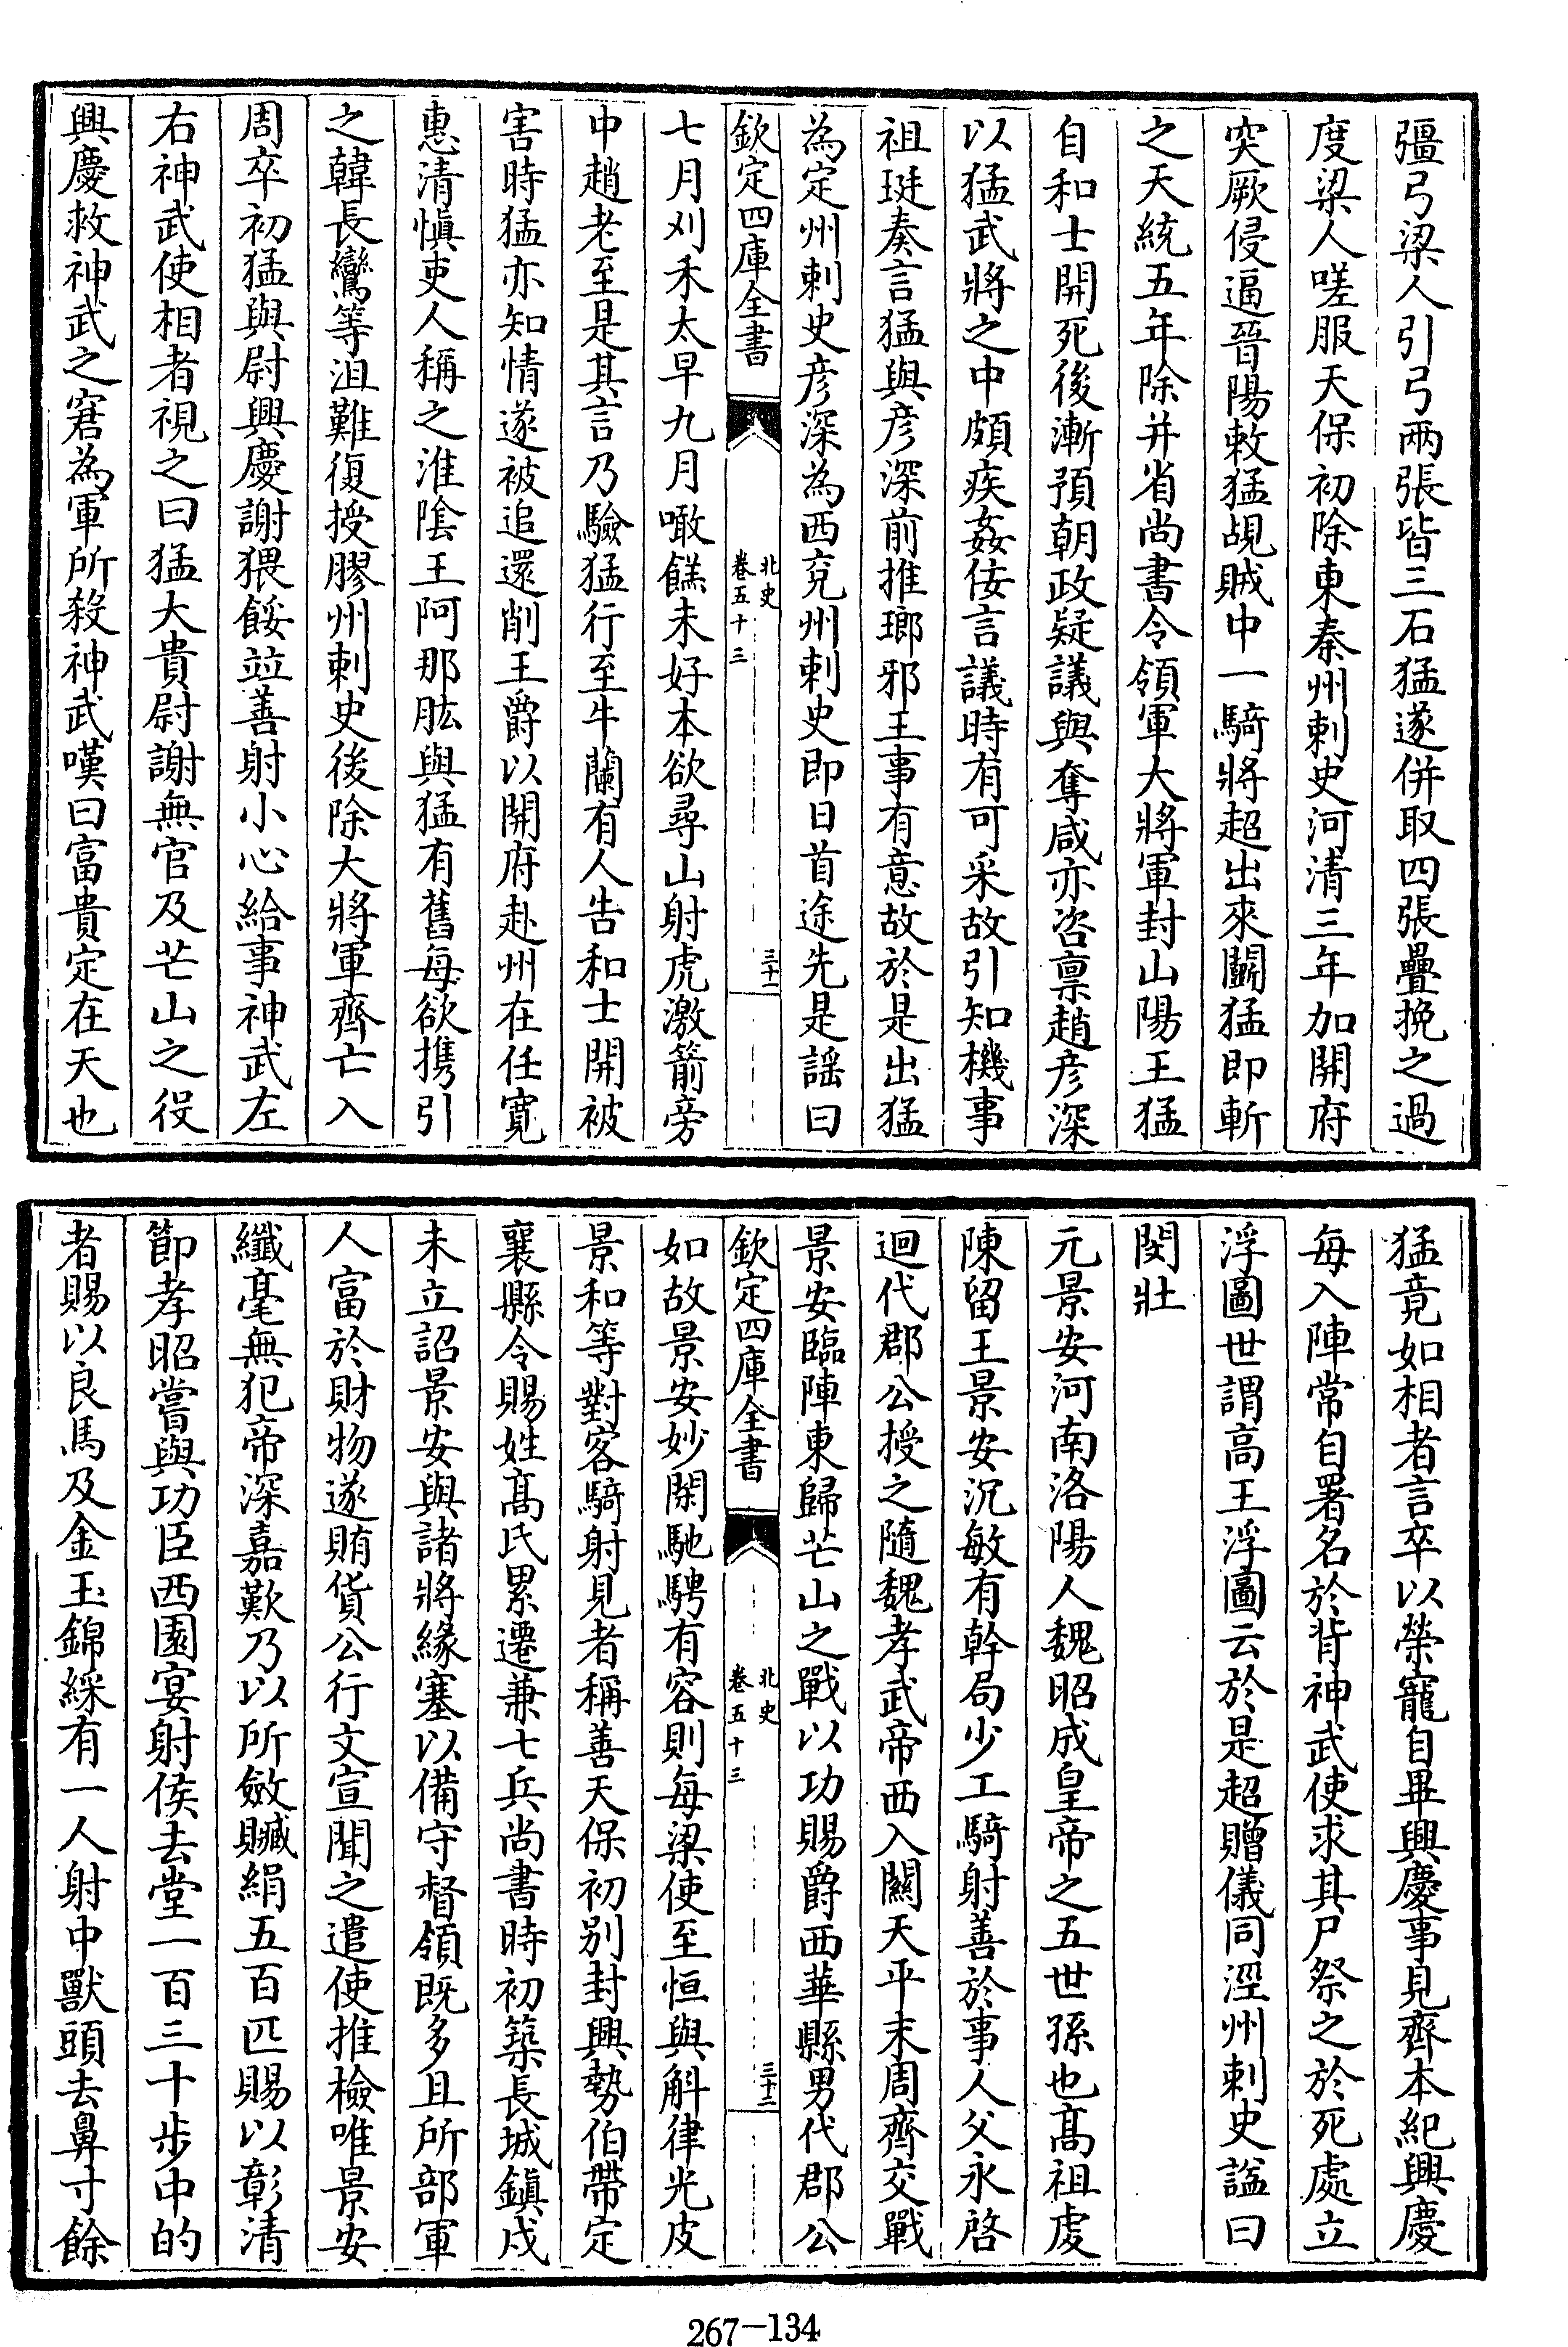 彊弓梁人引弓兩張皆三石猛遂併取四張疊挽之過
度梁人嗟服天保初除東秦州刺史河清三年加開府
突厥侵逼晉陽敕猛覘賊中一騎將超出來鬭猛即斬
之天統五年除并省尚書令領軍大將軍封山陽王猛
自和士開死後漸預朝政疑議與奪咸亦咨禀趙彥深
以猛武將之中頗疾姦佞言議時有可采故引知機事
祖珽奏言猛與彥深前推瑯邪王事有意故於是出猛
為定州刺史彥深為西兖州刺史即日首途先是謡曰
欽定四庫全書
北史
卷五十三
三十一
七月刈禾太早九月噉餻未好本欲尋山射虎激箭旁
中趙老至是其言乃驗猛行至牛蘭有人告和士開被
害時猛亦知情遂被追還削王爵以開府赴州在任寛
惠清慎吏人稱之淮隂王阿那肱與猛有舊每欲携引
之韓長鸞等沮難復授膠州刺史後除大將軍齊亡入
周卒初猛與尉興慶謝猥餒竝善射小心給事神武左
右神武使相者視之曰猛大貴尉謝無官及芒山之役
興慶救神武之窘為軍所殺神武嘆曰富貴定在天也
猛竟如相者言卒以榮寵自畢興慶事見齊本紀興慶
每入陣常自署名於背神武使求其尸祭之於死處立
浮圖世謂高王浮圖云於是超贈儀同涇州刺史諡曰
閔壯
元景安河南洛陽人魏昭成皇帝之五世孫也髙祖虔
陳留王景安沉敏有幹局少工騎射善於事人父永啓
迴代郡公授之隨魏孝武帝西入關天平末周齊交戰
景安臨陣東歸芒山之戰以功賜爵西華縣男代郡公
欽定四庫全書
北史
卷五十三
三十二
如故景安妙閑馳騁有容則每梁使至恒與斛律光皮
景和等對客騎射見者稱善天保初别封興勢伯帶定
襄縣令賜姓髙氏累遷兼七兵尚書時初築長城鎮戍
未立詔景安與諸將緣塞以備守督領既多且所部軍
人富於財物遂賄貨公行文宣聞之遣使推檢唯景安
纖毫無犯帝深嘉歎乃以所斂贓絹五百匹賜以彰清
節孝昭嘗與功臣西園宴射侯去堂一百三十步中的
者賜以良馬及金玉錦綵有一人射中獸頭去鼻寸餘
267-134